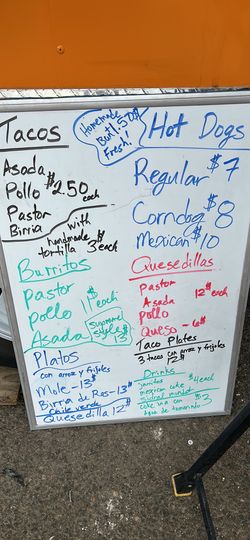 Tacos
Asada
Pollo $2.50 each
Pastor
Birria
with
handmade
tortilla 3$ each
Homemade
Fresh!
Hot Dogs
Regular $7
Corndog $8
Mexican $10
Burritos
Pastor
Pollo
Asada
11$ each
supreme
style $
13
Quesedillas
Pastor
Asada 12$ each
Pollo
Queso - 6$
Platos
con arroz y frijoles
Mole - 13$
Birria de Res - 13$
Chile verde
Quesedilla 12$
Taco Plates
3 tacos con arroz y frijoles
12$
Drinks
Jarritos
mexican coke $4 each
coke in a can $3
agua de tamarindo